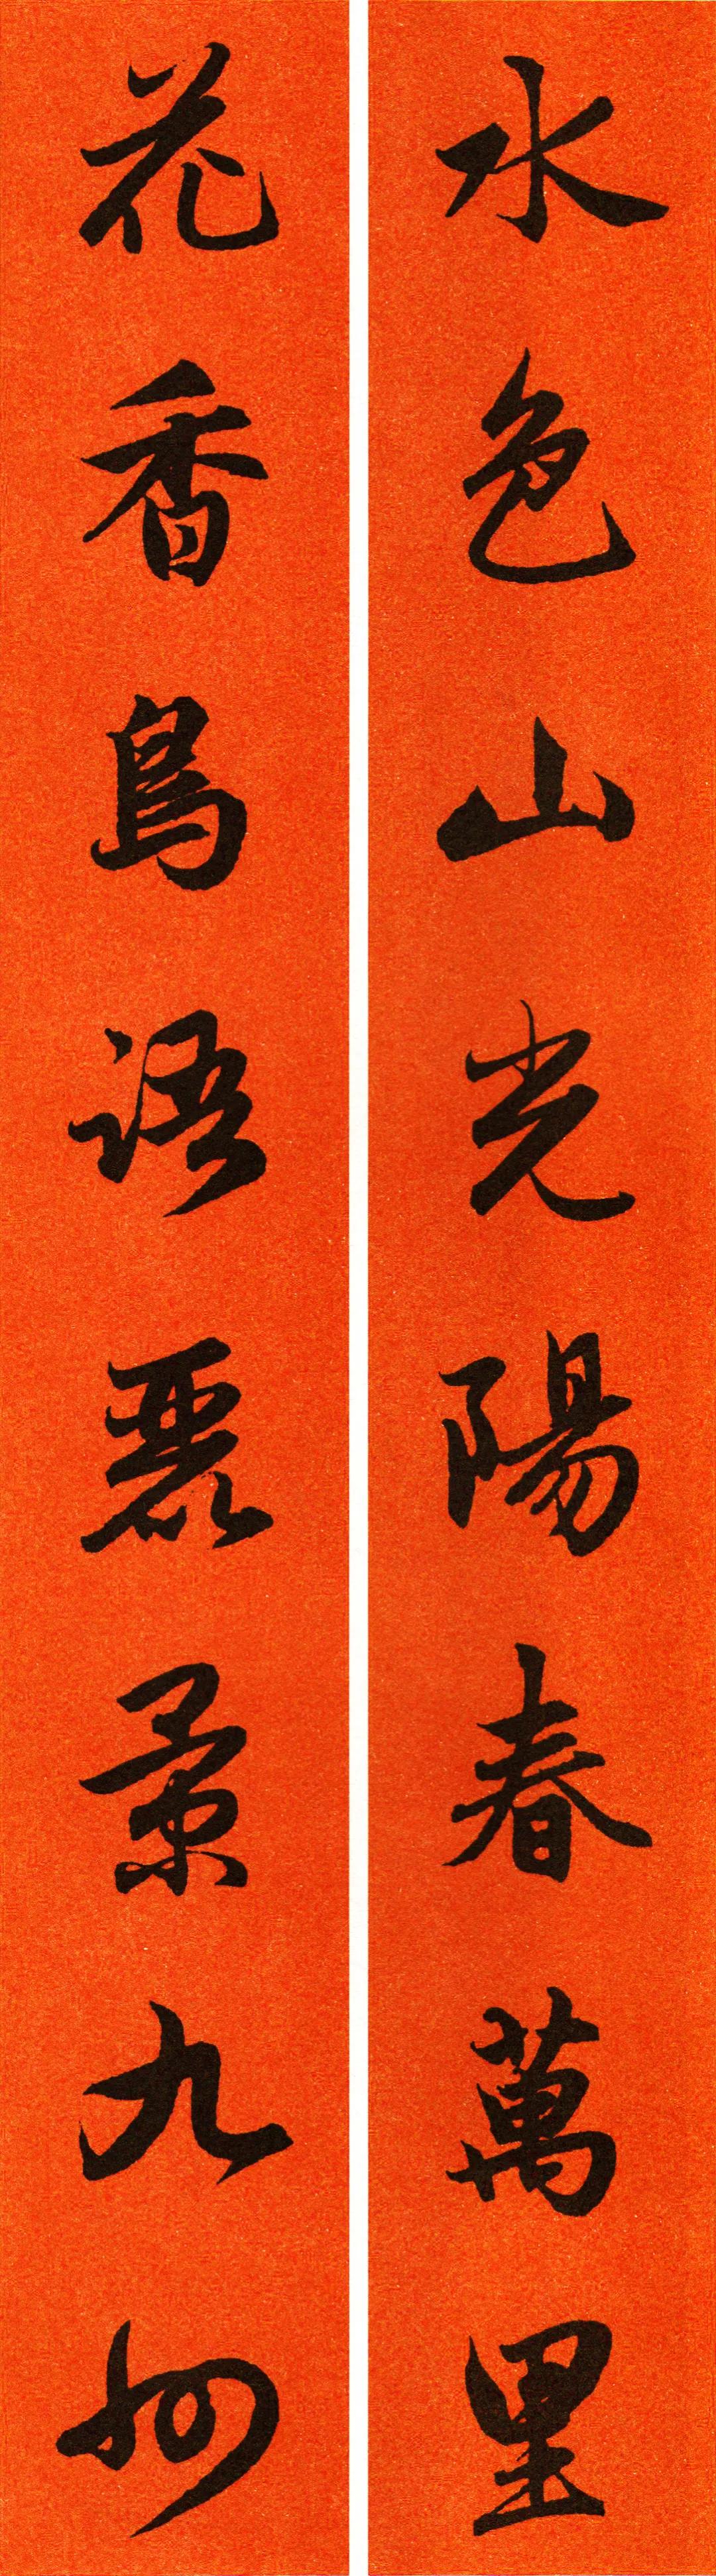 水色山光陽春萬里
花香鳥语麗景九州